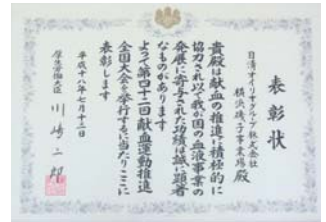 表彰状
日清オイリオグループ株式会社
横浜磯子事業場殿
貴殿は献血の推進に積極的に
協力され以て我が国の血液事業の
発展に寄与された功績は誠に顕著
なものがあります
よって第四十二回献血運動推進
全国大会を挙行するに当たりここに
表彰します
平成十八年七月十二日
厚生労働大臣 川崎二郎